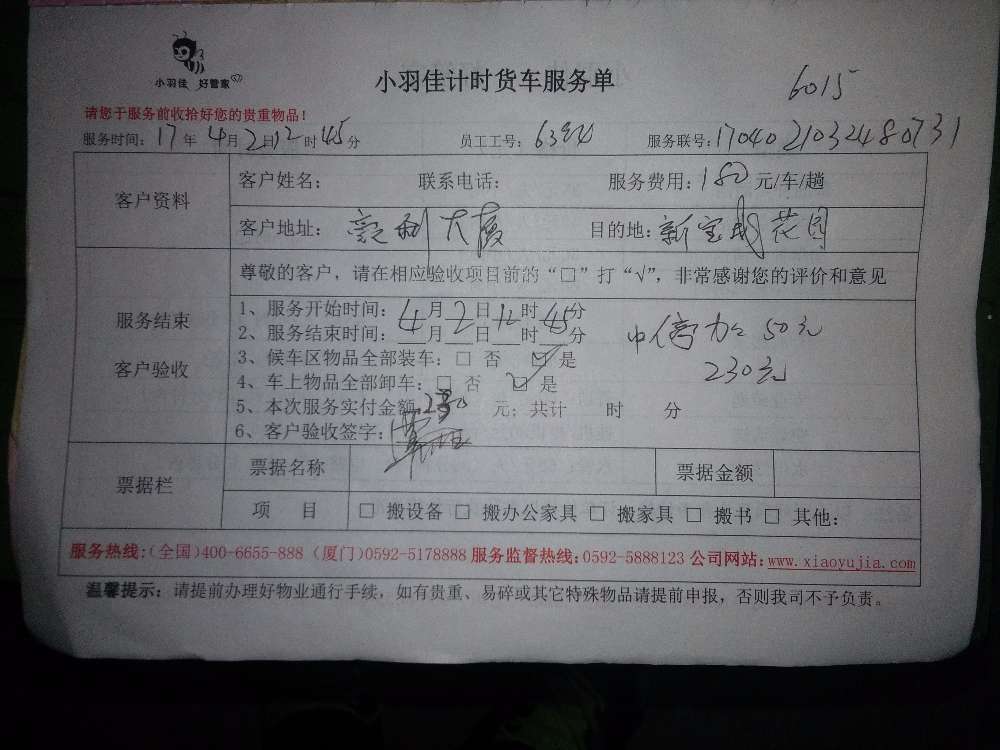 小羽佳 好管家
小羽佳计时货车服务单
6015
请您于服务前收拾好您的贵重物品!
服务时间: 17 年 4 月 2 日 12 时 45 分 员工工号: 6394 服务联号: 1704021032480731
客户资料
客户姓名: 联系电话: 服务费用: 180 元/车/趟
客户地址: 豪利大厦 目的地: 新宝城花园
服务结束
客户验收
尊敬的客户，请在相应验收项目前的“□”打“√”，非常感谢您的评价和意见
1、服务开始时间: 4月2日12时45分
2、服务结束时间: 月 日 时 分
3、候车区物品全部装车: □ 否 ☑ 是
4、车上物品全部卸车: □ 否 ☑ 是
5、本次服务实付金额 230 元; 共计 时 分
6、客户验收签字:
加 50元
230元
票据栏
票据名称 票据金额
项 目 □ 搬设备 □ 搬办公家具 □ 搬家具 □ 搬书 □ 其他:
服务热线:(全国)400-6655-888 (厦门)0592-5178888 服务监督热线:0592-5888123 公司网站:www.xiaoyujia.com
温馨提示: 请提前办理好物业通行手续，如有贵重、易碎或其它特殊物品请提前申报，否则我司不予负责。